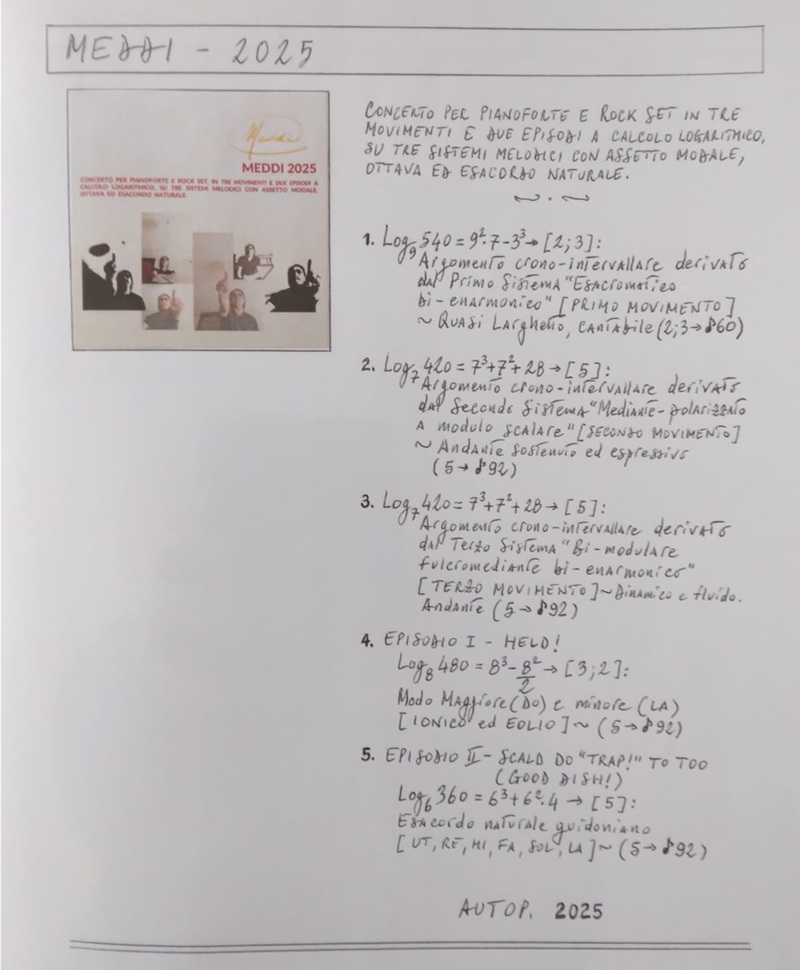 MEDDI - 2025
Meddi
MEDDI 2025
CONCERTO PER PIANOFORTE E ROCK SET, IN TRE MOVIMENTI E DUE EPISODI A
CALCOLO LOGARITMICO, SU TRE SISTEMI MELODICI CON ASSETTO MODALE,
OTTAVA ED ESACORDO NATURALE.
CONCERTO PER PIANOFORTE E ROCK SET IN TRE
MOVIMENTI E DUE EPISODI A CALCOLO LOGARITMICO,
SU TRE SISTEMI MELODICI CON ASSETTO MODALE,
OTTAVA ED ESACORDO NATURALE.
1. Log₉ 540 = 9²·7-3³→[2;3]:
Argomento crono-intervallare derivato
dal Primo Sistema "Esacromatico
bi-enarmonico" [PRIMO MOVIMENTO]
~ Quasi Larghetto, cantabile (2;3→♪60)
2. Log₇ 420 = 7³+7²+28→[5]:
Argomento crono-intervallare derivato
dal Secondo Sistema "Mediante-polarizzato
a modulo scalare" [SECONDO MOVIMENTO]
~ Andante sostenuto ed espressivo
(5→♪92)
3. Log₇ 420 = 7³+7²+28→[5]:
Argomento crono-intervallare derivato
dal Terzo Sistema "Bi-modulare
fulcromediante bi-enarmonico"
[TERZO MOVIMENTO]~Dinamico e fluido.
Andante (5→♪92)
4. EPISODIO I - HELD!
Log₈ 480 = 8³-8²/2→[3;2]:
Modo Maggiore (Do) e minore (LA)
[IONICO ed EOLIO]~(5→♪92)
5. EPISODIO II - SCALD DO "TRAP!" TO TOO
(GOOD DISH!)
Log₆ 360 = 6³+6²·4→[5]:
Esacordo naturale guidoniano
[UT, RE, MI, FA, SOL, LA]~(5→♪92)
AUTOP. 2025